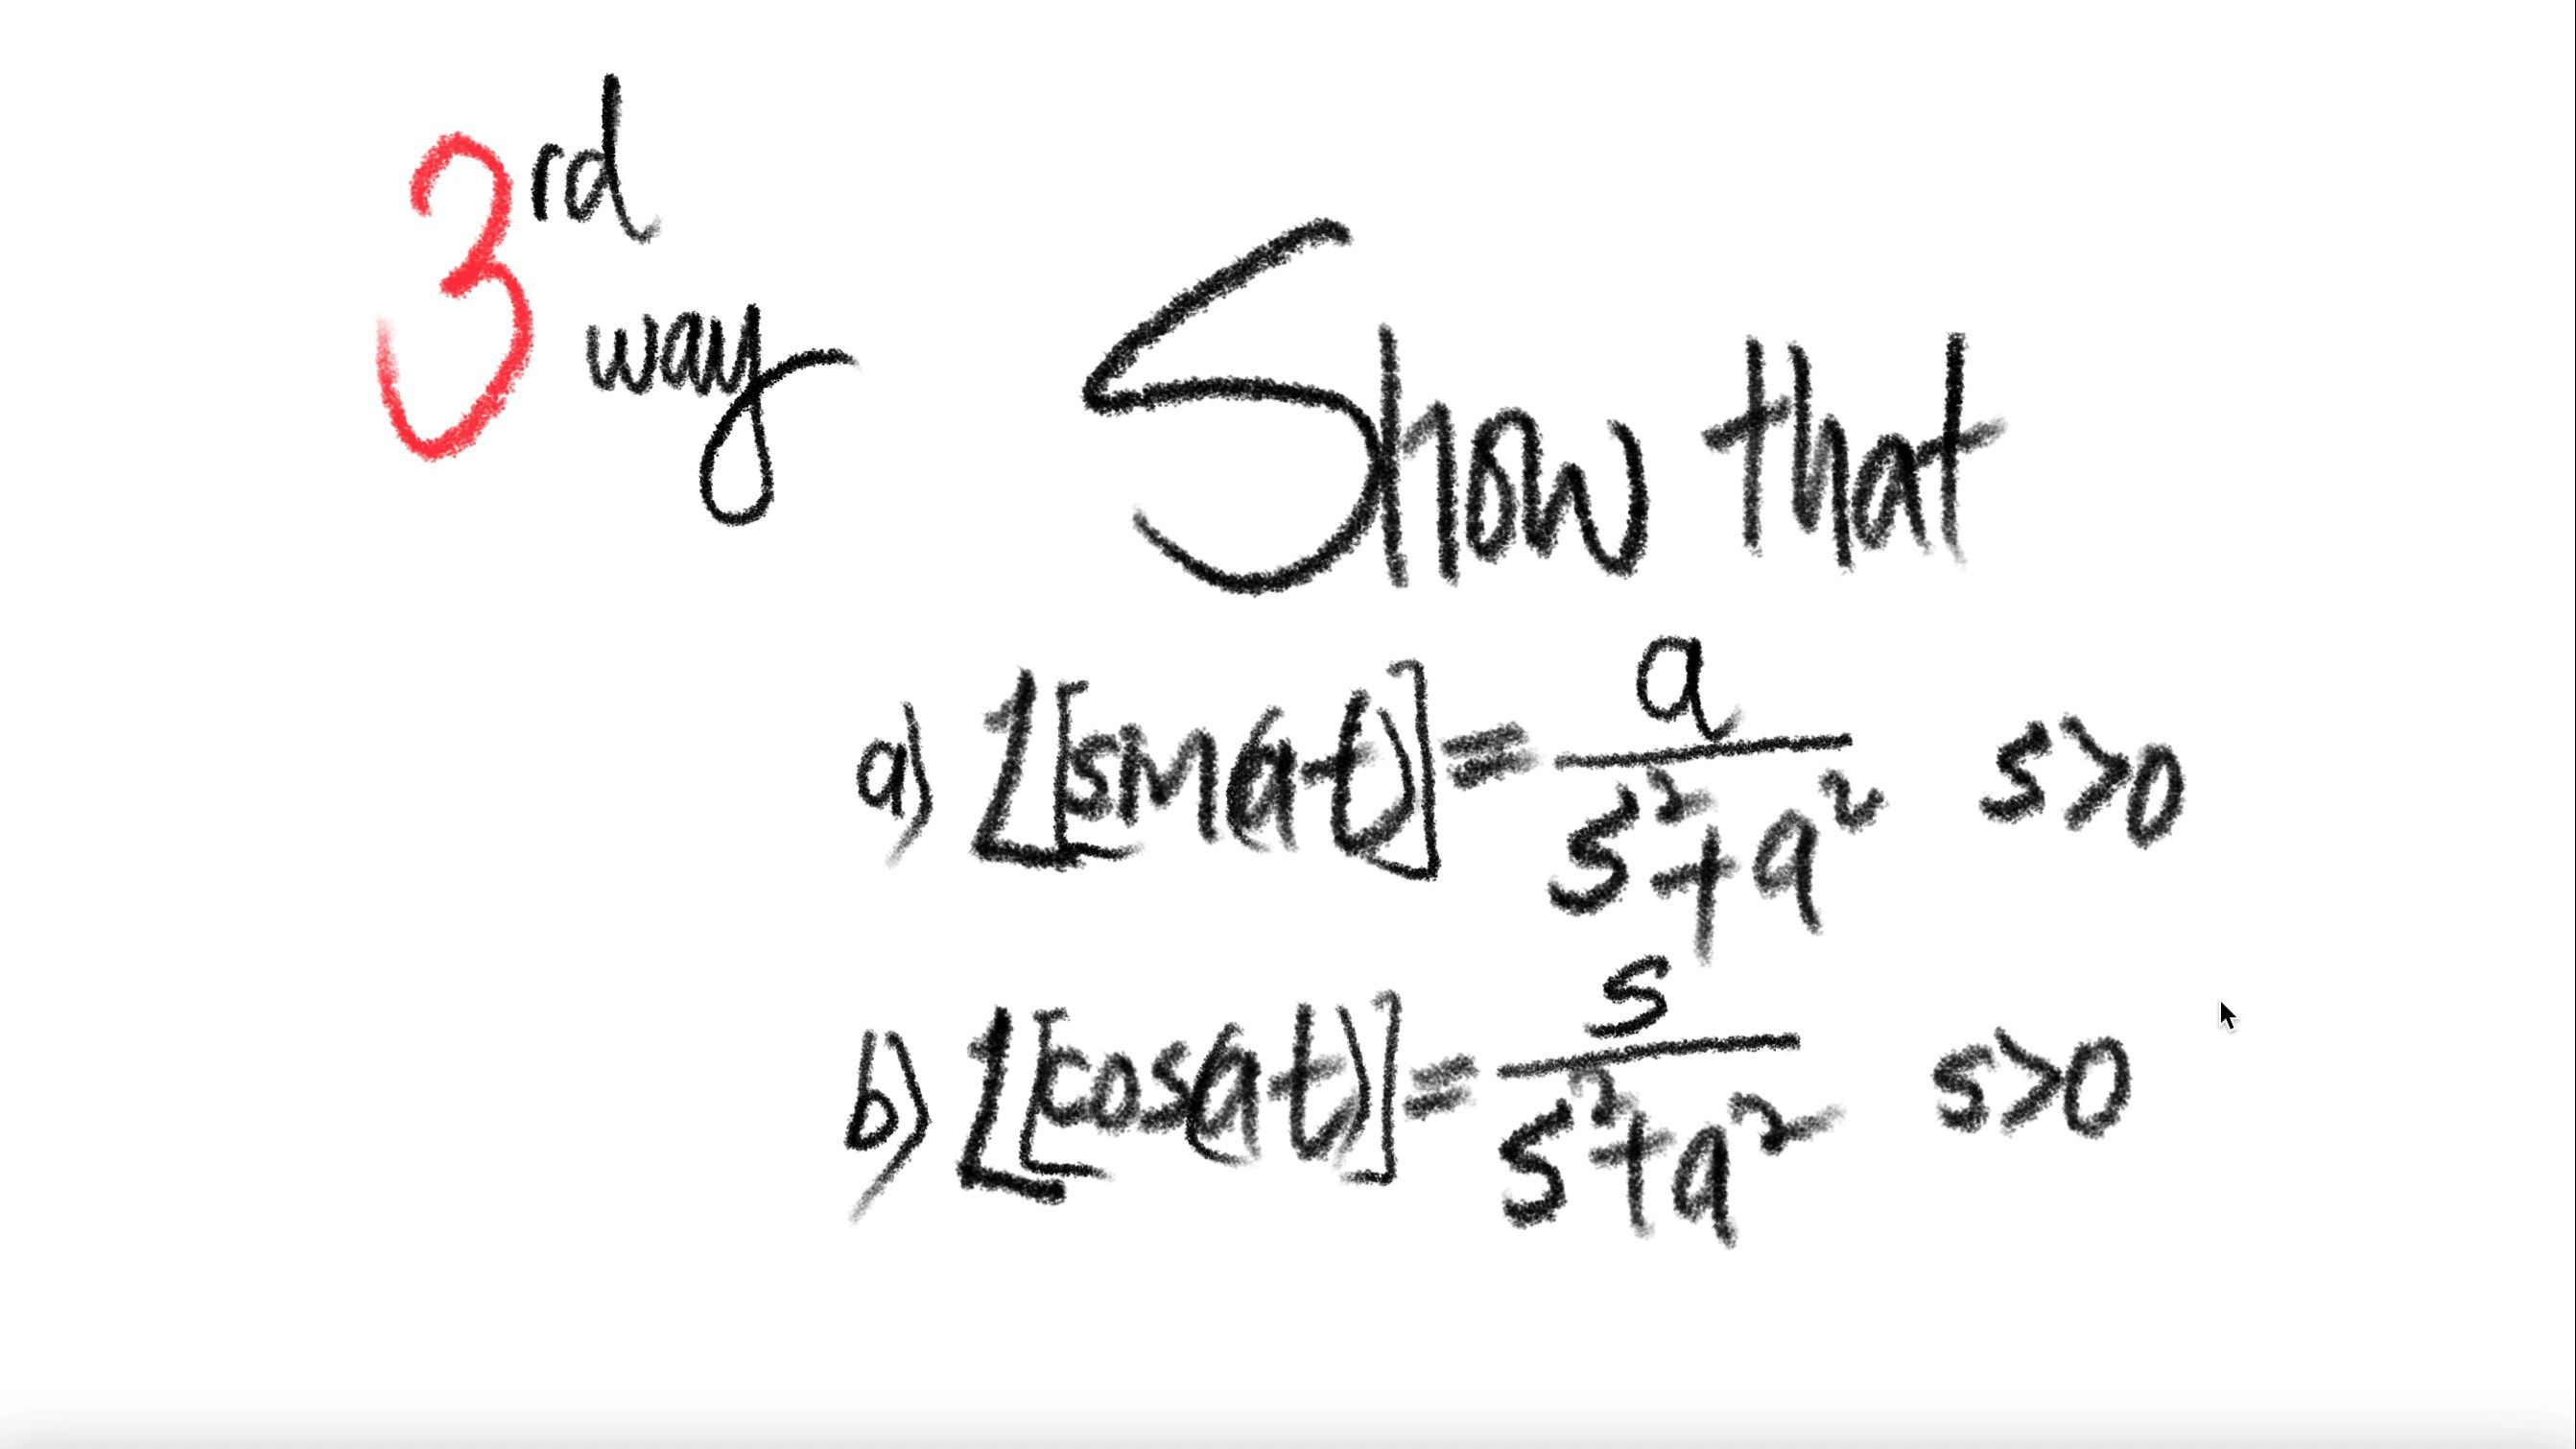 3rd
way
Show that
a) L[sin(at)] = a/(s²+a²) s>0
b) L[cos(at)] = s/(s²+a²) s>0